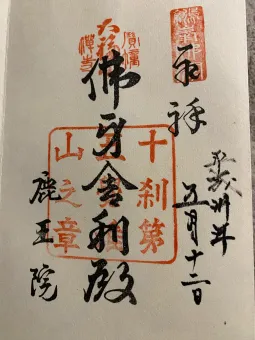 奉拝
平成卅年
五月十二日
佛牙舎利殿
鹿王院
十刹第
山之章